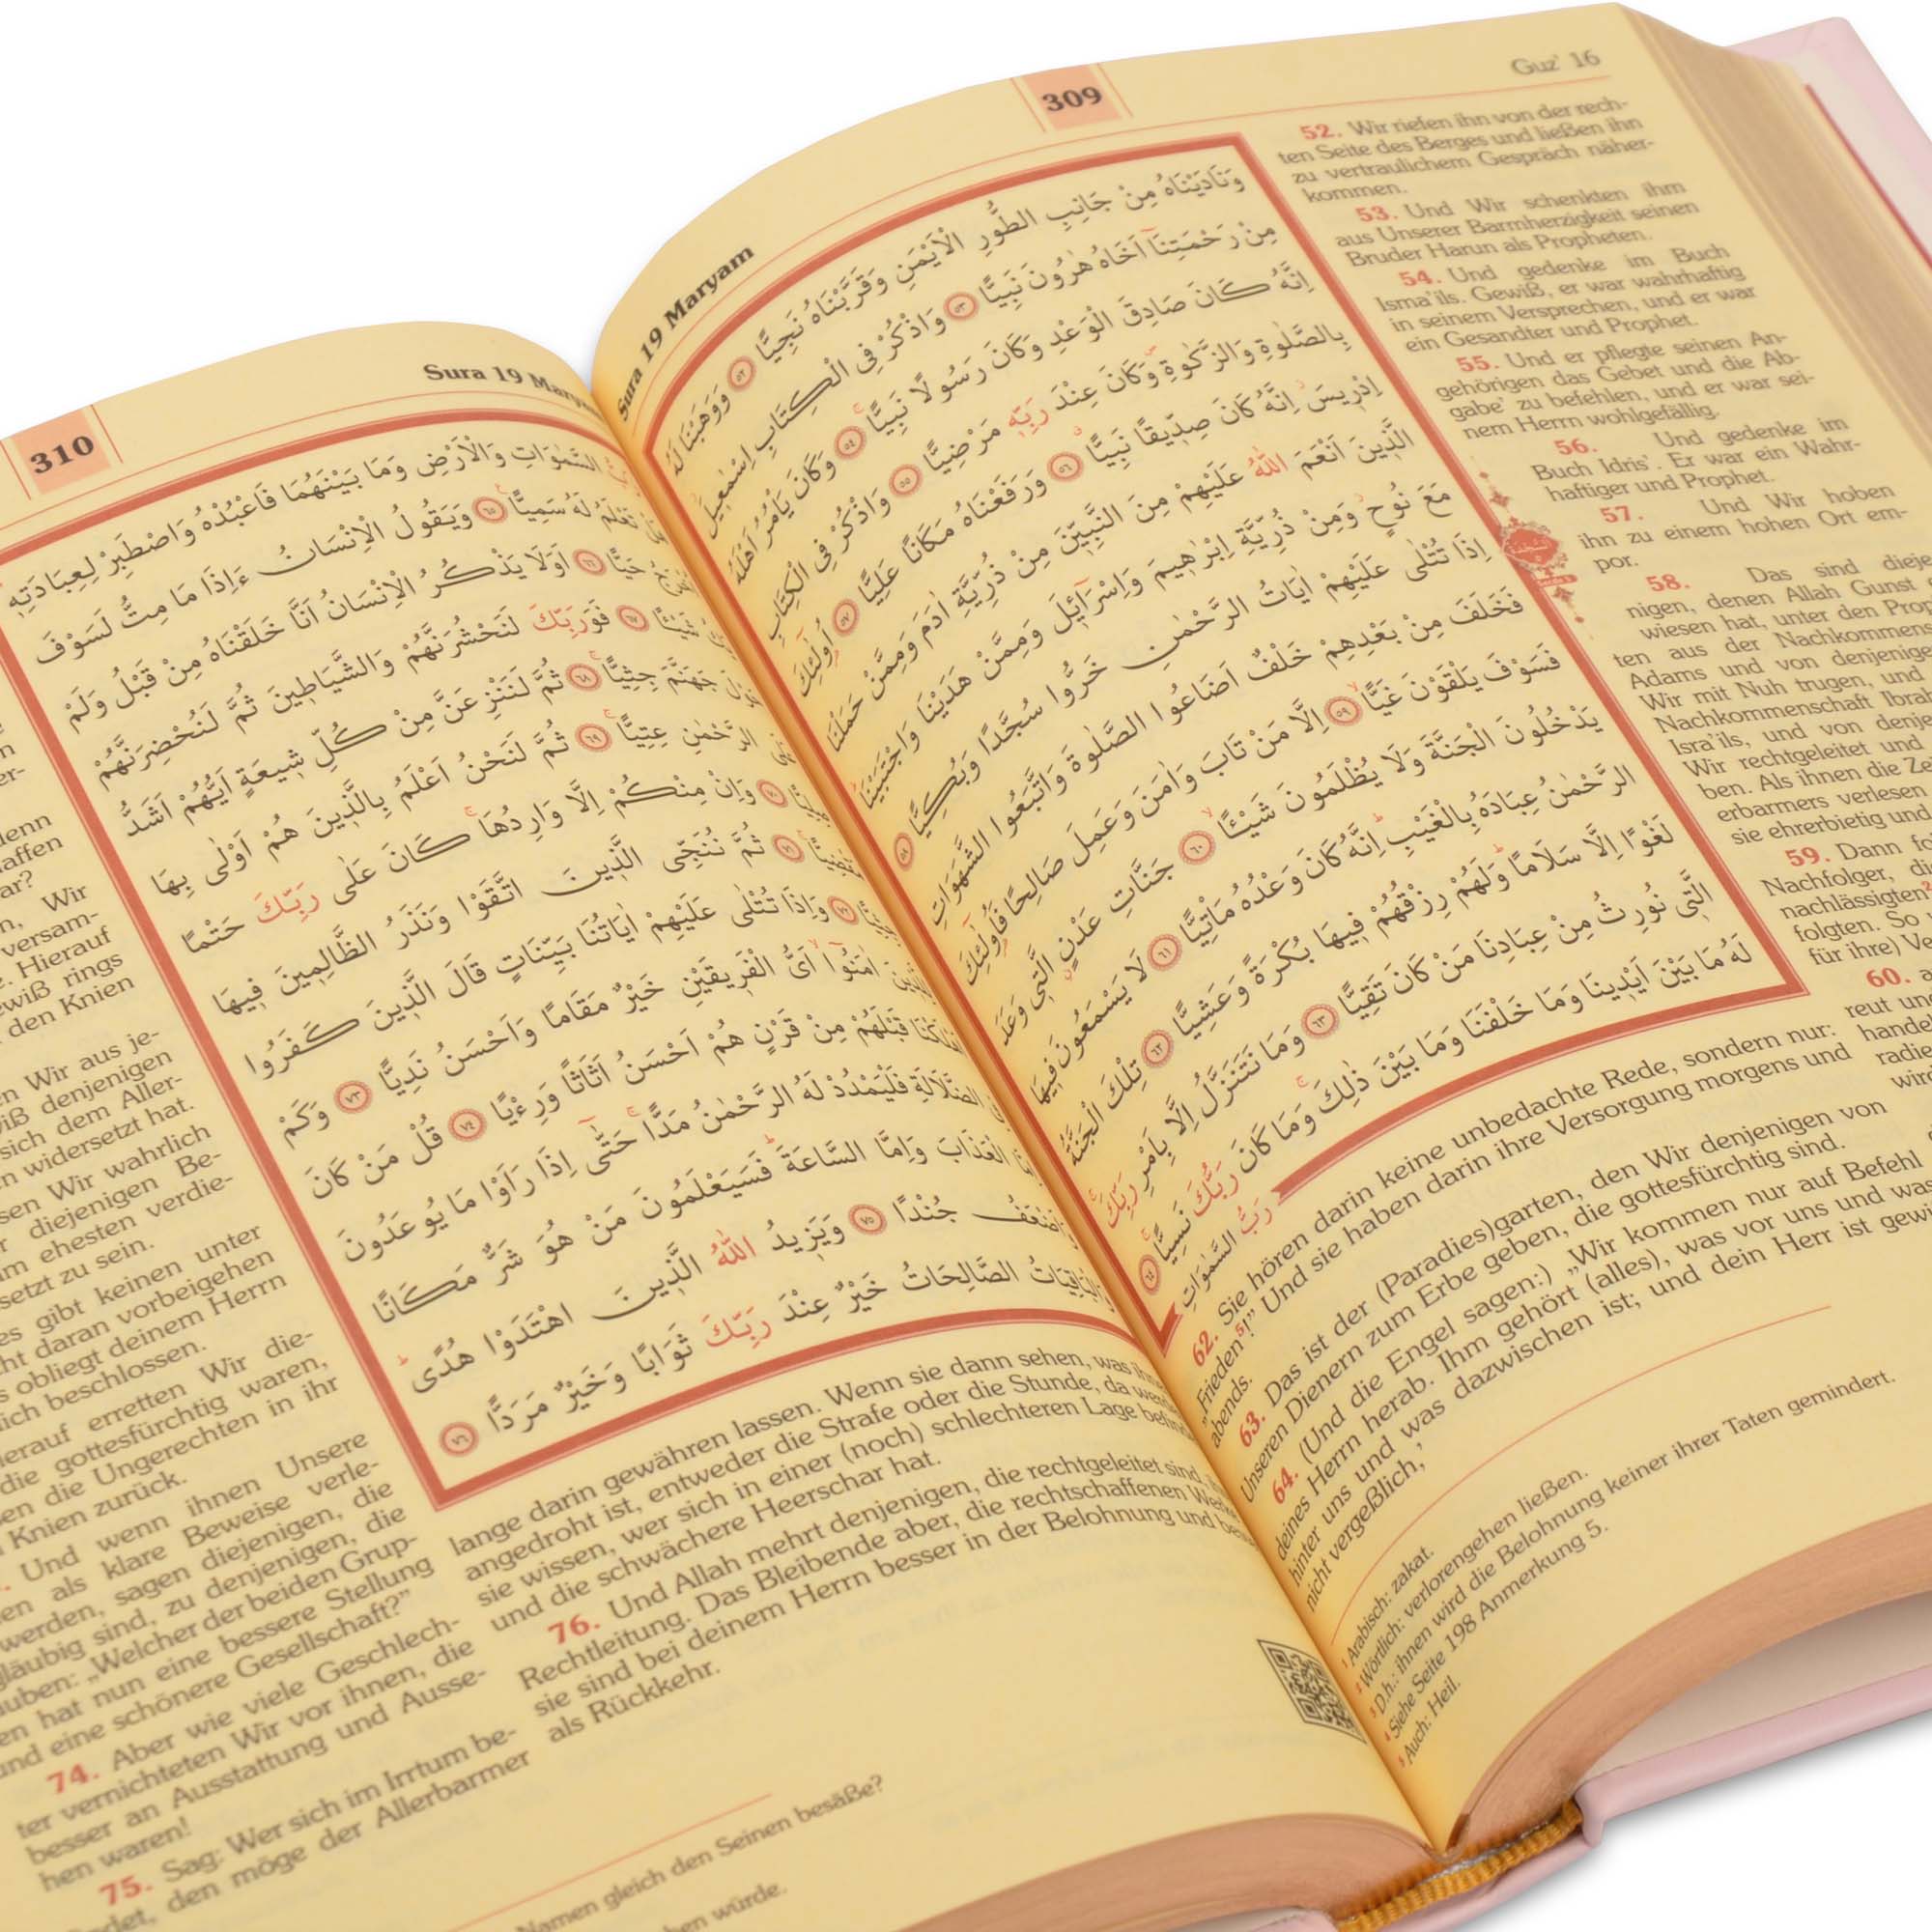 309
Guz' 16
Sura 19 Maryam
وَنَادَيْنَاهُ مِنْ جَانِبِ الطُّورِ الْاَيْمَنِ وَقَرَّبْنَاهُ نَجِيًّا ﴿٥٢﴾ وَوَهَبْنَا لَهُ
مِنْ رَحْمَتِنَا اَخَاهُ هٰرُونَ نَبِيًّا ﴿٥٣﴾ وَاذْكُرْ فِي الْكِتَابِ اِسْمٰعِيلَ
اِنَّهُ كَانَ صَادِقَ الْوَعْدِ وَكَانَ رَسُولًا نَبِيًّا ﴿٥٤﴾ وَكَانَ يَاْمُرُ اَهْلَهُ
بِالصَّلٰوةِ وَالزَّكٰوةِ وَكَانَ عِنْدَ رَبِّهِ مَرْضِيًّا ﴿٥٥﴾ وَاذْكُرْ فِي الْكِتَابِ
اِدْرِيسَ اِنَّهُ كَانَ صِدِّيقًا نَبِيًّا ﴿٥٦﴾ وَرَفَعْنَاهُ مَكَانًا عَلِيًّا ﴿٥٧﴾ اُولٰٓئِكَ
الَّذِينَ اَنْعَمَ اللّٰهُ عَلَيْهِمْ مِنَ النَّبِيِّنَ مِنْ ذُرِّيَّةِ اٰدَمَ وَمِمَّنْ حَمَلْنَا
مَعَ نُوحٍ وَمِنْ ذُرِّيَّةِ اِبْرٰهِيمَ وَاِسْرَٓائِلَ وَمِمَّنْ هَدَيْنَا وَاجْتَبَيْنَا
اِذَا تُتْلٰى عَلَيْهِمْ اٰيَاتُ الرَّحْمٰنِ خَرُّوا سُجَّدًا وَبُكِيًّا ﴿٥٨﴾
فَخَلَفَ مِنْ بَعْدِهِمْ خَلْفٌ اَضَاعُوا الصَّلٰوةَ وَاتَّبَعُوا الشَّهَوَاتِ
فَسَوْفَ يَلْقَوْنَ غَيًّا ﴿٥٩﴾ اِلَّا مَنْ تَابَ وَاٰمَنَ وَعَمِلَ صَالِحًا فَاُولٰٓئِكَ
يَدْخُلُونَ الْجَنَّةَ وَلَا يُظْلَمُونَ شَيْـًٔا ﴿٦٠﴾ جَنَّاتِ عَدْنٍ الَّتِي وَعَدَ
الرَّحْمٰنُ عِبَادَهُ بِالْغَيْبِ اِنَّهُ كَانَ وَعْدُهُ مَاْتِيًّا ﴿٦١﴾ لَا يَسْمَعُونَ فِيهَا
لَغْوًا اِلَّا سَلَامًا وَلَهُمْ رِزْقُهُمْ فِيهَا بُكْرَةً وَعَشِيًّا ﴿٦٢﴾ تِلْكَ الْجَنَّةُ
الَّتِي نُورِثُ مِنْ عِبَادِنَا مَنْ كَانَ تَقِيًّا ﴿٦٣﴾ وَمَا نَتَنَزَّلُ اِلَّا بِاَمْرِ رَبِّكَ
لَهُ مَا بَيْنَ اَيْدِينَا وَمَا خَلْفَنَا وَمَا بَيْنَ ذٰلِكَ وَمَا كَانَ رَبُّكَ نَسِيًّا ﴿٦٤﴾
رَبُّ السَّمٰوَاتِ
52. Wir riefen ihn von der rech-
ten Seite des Berges und ließen ihn
zu vertraulichem Gespräch näher-
kommen.
53. Und Wir schenkten ihm
aus Unserer Barmherzigkeit seinen
Bruder Harun als Propheten.
54. Und gedenke im Buch
Isma'ils. Gewiß, er war wahrhaftig
in seinem Versprechen, und er war
ein Gesandter und Prophet.
55. Und er pflegte seinen An-
gehörigen das Gebet und die Ab-
gabe¹ zu befehlen, und er war sei-
nem Herrn wohlgefällig.
56. Und gedenke im
Buch Idris'. Er war ein Wahr-
haftiger und Prophet.
57. Und Wir hoben
ihn zu einem hohen Ort em-
por.
58. Das sind dieje
nigen, denen Allah Gunst
wiesen hat, unter den Prop
ten aus der Nachkommens
Adams und von denjenige
Wir mit Nuh trugen, und
Nachkommenschaft Ibra
Isra'ils, und von denje
Wir rechtgeleitet und
ben. Als ihnen die Ze
erbarmers verlesen
sie ehrerbietig und
59. Dann fo
Nachfolger, di
nachlässigten²
folgten. So
für ihre) Ve
60. a
reut un
handel
radie
wird
62. Sie hören darin keine unbedachte Rede, sondern nur:
„Frieden⁵!” Und sie haben darin ihre Versorgung morgens und
abends.
63. Das ist der (Paradies)garten, den Wir denjenigen von
Unseren Dienern zum Erbe geben, die gottesfürchtig sind.
64. (Und die Engel sagen:) „Wir kommen nur auf Befehl
deines Herrn herab. Ihm gehört (alles), was vor uns und was
hinter uns und was dazwischen ist; und dein Herr ist gewi
nicht vergeßlich,
¹ Arabisch: zakat.
² Wörtlich: verlorengehen ließen.
³ D.h.: ihnen wird die Belohnung keiner ihrer Taten gemindert.
⁴ Siehe Seite 198 Anmerkung 5.
⁵ Auch: Heil.
310
Sura 19 Maryam
السَّمٰوَاتِ وَالْاَرْضِ وَمَا بَيْنَهُمَا فَاعْبُدْهُ وَاصْطَبِرْ لِعِبَادَتِهِ
تَعْلَمُ لَهُ سَمِيًّا ﴿٦٥﴾ وَيَقُولُ الْاِنْسَانُ ءَاِذَا مَا مِتُّ لَسَوْفَ
حَيًّا ﴿٦٦﴾ اَوَلَا يَذْكُرُ الْاِنْسَانُ اَنَّا خَلَقْنَاهُ مِنْ قَبْلُ وَلَمْ
شَيْـًٔا ﴿٦٧﴾ فَوَرَبِّكَ لَنَحْشُرَنَّهُمْ وَالشَّيَاطِينَ ثُمَّ لَنُحْضِرَنَّهُمْ
جَهَنَّمَ جِثِيًّا ﴿٦٨﴾ ثُمَّ لَنَنْزِعَنَّ مِنْ كُلِّ شِيعَةٍ اَيُّهُمْ اَشَدُّ
الرَّحْمٰنِ عِتِيًّا ﴿٦٩﴾ ثُمَّ لَنَحْنُ اَعْلَمُ بِالَّذِينَ هُمْ اَوْلٰى بِهَا
﴿٧٠﴾ وَاِنْ مِنْكُمْ اِلَّا وَارِدُهَا كَانَ عَلٰى رَبِّكَ حَتْمًا
﴿٧١﴾ ثُمَّ نُنَجِّي الَّذِينَ اتَّقَوْا وَنَذَرُ الظَّالِمِينَ فِيهَا
﴿٧٢﴾ وَاِذَا تُتْلٰى عَلَيْهِمْ اٰيَاتُنَا بَيِّنَاتٍ قَالَ الَّذِينَ كَفَرُوا
اٰمَنُوا اَيُّ الْفَرِيقَيْنِ خَيْرٌ مَقَامًا وَاَحْسَنُ نَدِيًّا ﴿٧٣﴾ وَكَمْ
قَبْلَهُمْ مِنْ قَرْنٍ هُمْ اَحْسَنُ اَثَاثًا وَرِءْيًا ﴿٧٤﴾ قُلْ مَنْ كَانَ
الضَّلَالَةِ فَلْيَمْدُدْ لَهُ الرَّحْمٰنُ مَدًّا حَتّٰى اِذَا رَاَوْا مَا يُوعَدُونَ
الْعَذَابَ وَاِمَّا السَّاعَةَ فَسَيَعْلَمُونَ مَنْ هُوَ شَرٌّ مَكَانًا
وَاَضْعَفُ جُنْدًا ﴿٧٥﴾ وَيَزِيدُ اللّٰهُ الَّذِينَ اهْتَدَوْا هُدًى
وَالْبَاقِيَاتُ الصَّالِحَاتُ خَيْرٌ عِنْدَ رَبِّكَ ثَوَابًا وَخَيْرٌ مَرَدًّا ﴿٧٦﴾
denn
affen
ar?
n, Wir
versam-
. Hierauf
ewiß rings
den Knien
en Wir aus je-
wiß denjenigen
sich dem Aller-
n widersetzt hat.
sen Wir wahrlich
r diejenigen Be-
m ehesten verdie-
setzt zu sein.
es gibt keinen unter
ht daran vorbeigehen
s obliegt deinem Herrn
lich beschlossen.
ierauf erretten Wir die-
die gottesfürchtig waren,
en die Ungerechten in ihr
Knien zurück.
. Und wenn ihnen Unsere
en als klare Beweise verle-
werden, sagen diejenigen, die
gläubig sind, zu denjenigen, die
auben: „Welcher der beiden Grup-
en hat nun eine bessere Stellung
und eine schönere Gesellschaft?”
74. Aber wie viele Geschlech-
ter vernichteten Wir vor ihnen, die
besser an Ausstattung und Ausse-
hen waren!
75. Sag: Wer sich im Irrtum be-
indet, den möge der Allerbarmer
lange darin gewähren lassen. Wenn sie dann sehen, was ihn
angedroht ist, entweder die Strafe oder die Stunde, da werd
sie wissen, wer sich in einer (noch) schlechteren Lage befind
und die schwächere Heerschar hat.
76. Und Allah mehrt denjenigen, die rechtgeleitet sind,
Rechtleitung. Das Bleibende aber, die rechtschaffenen Werke
sie sind bei deinem Herrn besser in der Belohnung und bes
als Rückkehr.
Namen gleich den Seinen besäße?
ben würde.